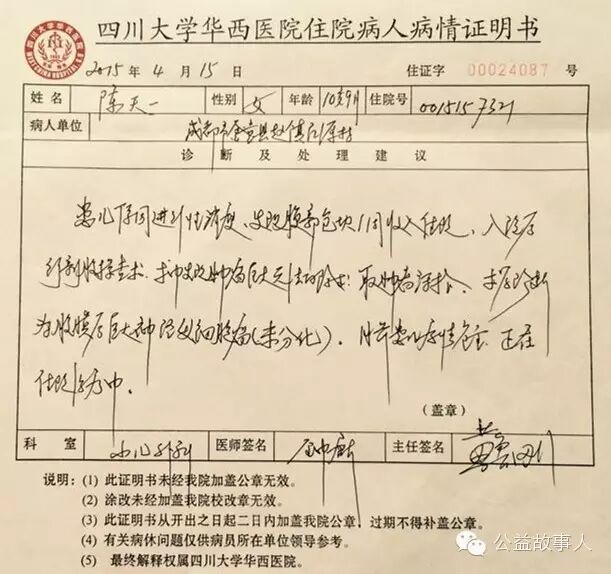 四川大学华西医院住院病人病情证明书
2015年4月15日 住证字 00024087 号
姓名 陈天一 性别 女 年龄 10岁9月 住院号 0015157321
病人单位 成都市金堂县赵镇
诊断及处理建议
患儿因进行性消瘦、发现腹部包块11月收入住院。入院后
行剖腹探查术,术中发现肿瘤巨大无法切除,取肿瘤活检。术后诊断
为腹膜后巨大神经母细胞瘤(未分化)。目前患儿病情危重,正在
住院治疗中。
(盖章)
科室 小儿外科 医师签名 主任签名
说明:(1) 此证明书未经我院加盖公章无效。
(2) 涂改未经加盖我院校改章无效。
(3) 此证明书从开出之日起二日内加盖我院公章,过期不得补盖公章。
(4) 有关病休问题仅供病员所在单位领导参考。
(5) 最终解释权属四川大学华西医院。
公益故事人